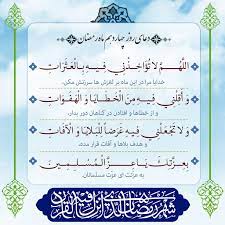 دعای روز چهاردهم ماه رمضان
اللَّهُمَّ لَا تُؤَاخِذْنِي فِيهِ بِالْعَثَرَاتِ
خدایا مرا در این ماه بر لغزش ها سرزنش مکن.
وَ أَقِلْنِي فِيهِ مِنَ الْخَطَايَا وَ الْهَفَوَاتِ
و از خطاها و افتادن در گناهان دور بدار،
وَ لَا تَجْعَلْنِي فِيهِ غَرَضاً لِلْبَلَايَا وَ الْآفَاتِ
و هدف بلاها و آفات قرار مده،
بِعِزَّتِكَ يَا عِزَّ الْمُسْلِمِينَ
به عزتت ای عزت مسلمانان.
شهر رمضان الذی انزل فیه القرآن